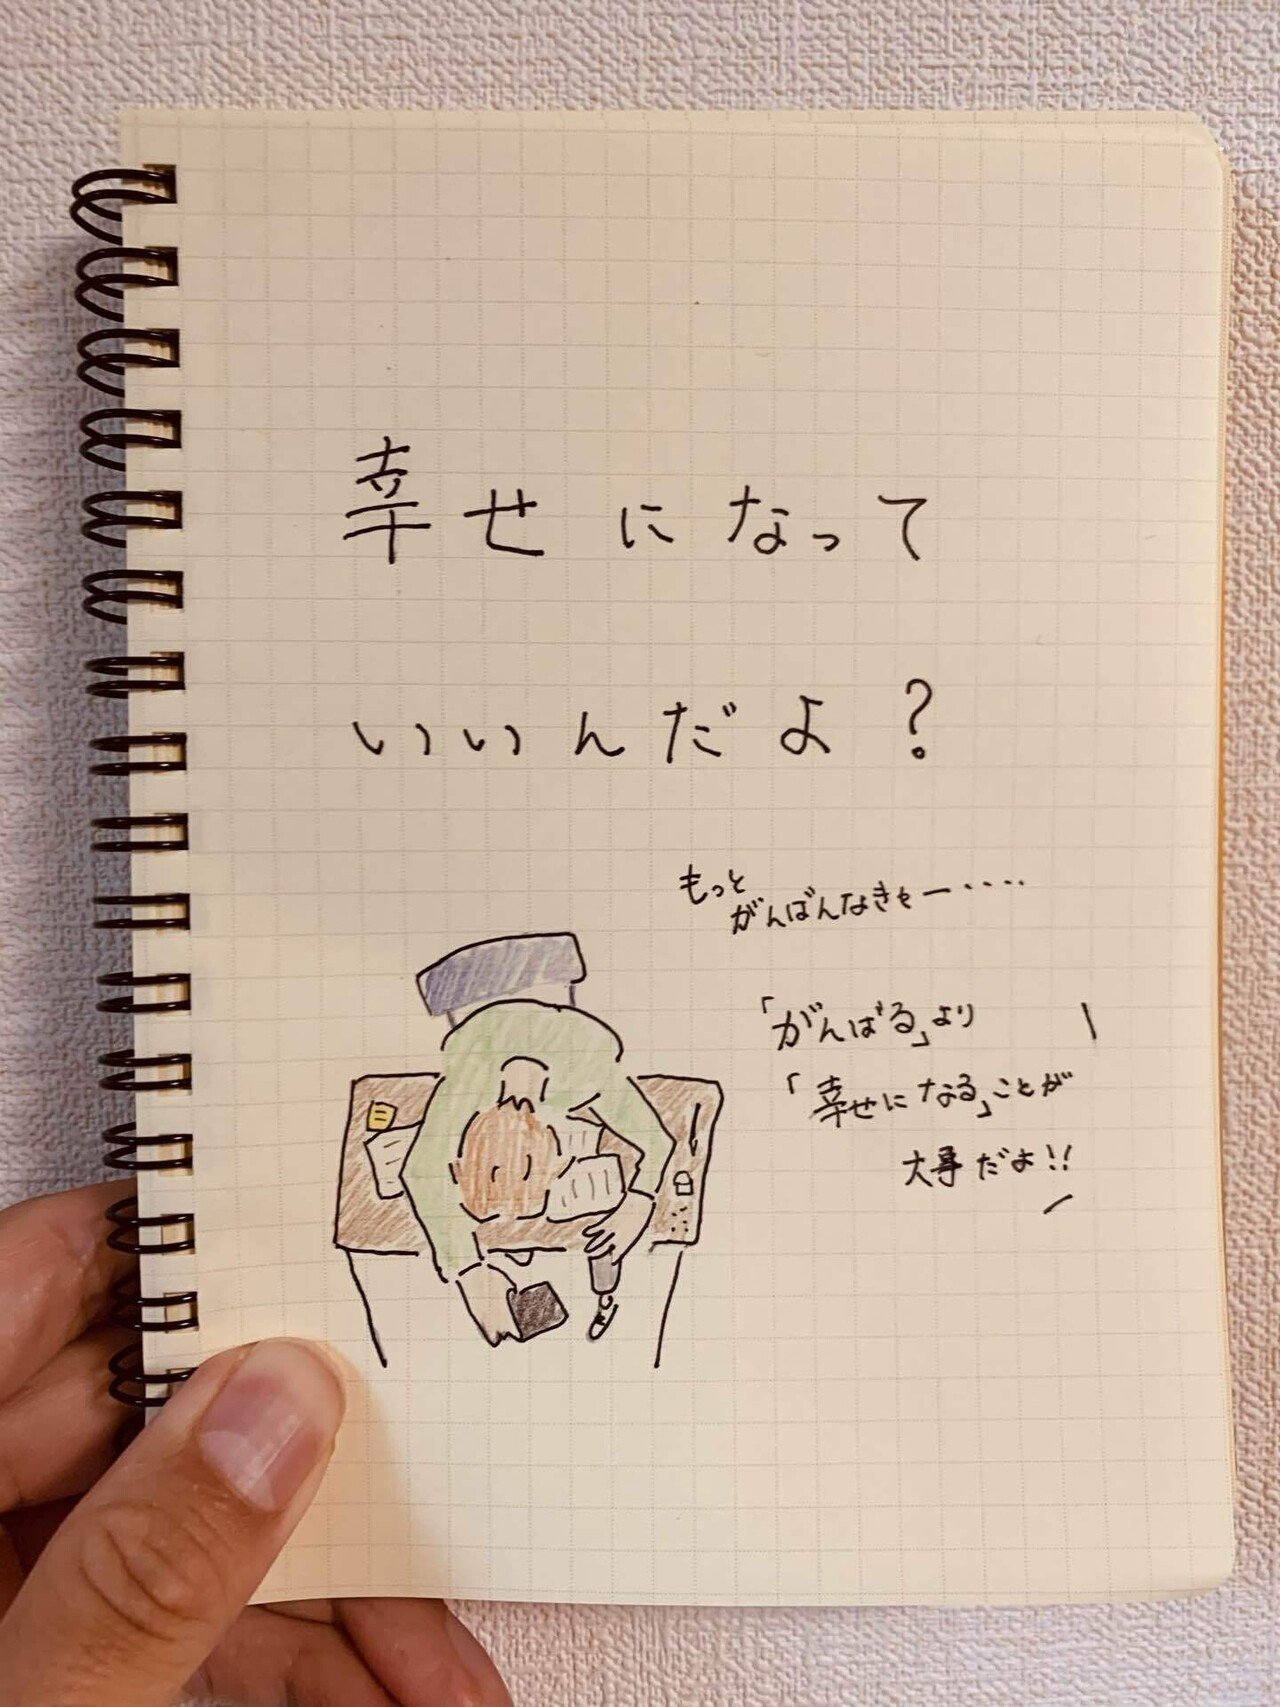 幸せになって
いいんだよ?
もっと
がんばんなきゃー・・・・
「がんばる」より
「幸せになる」ことが
大事だよ!!